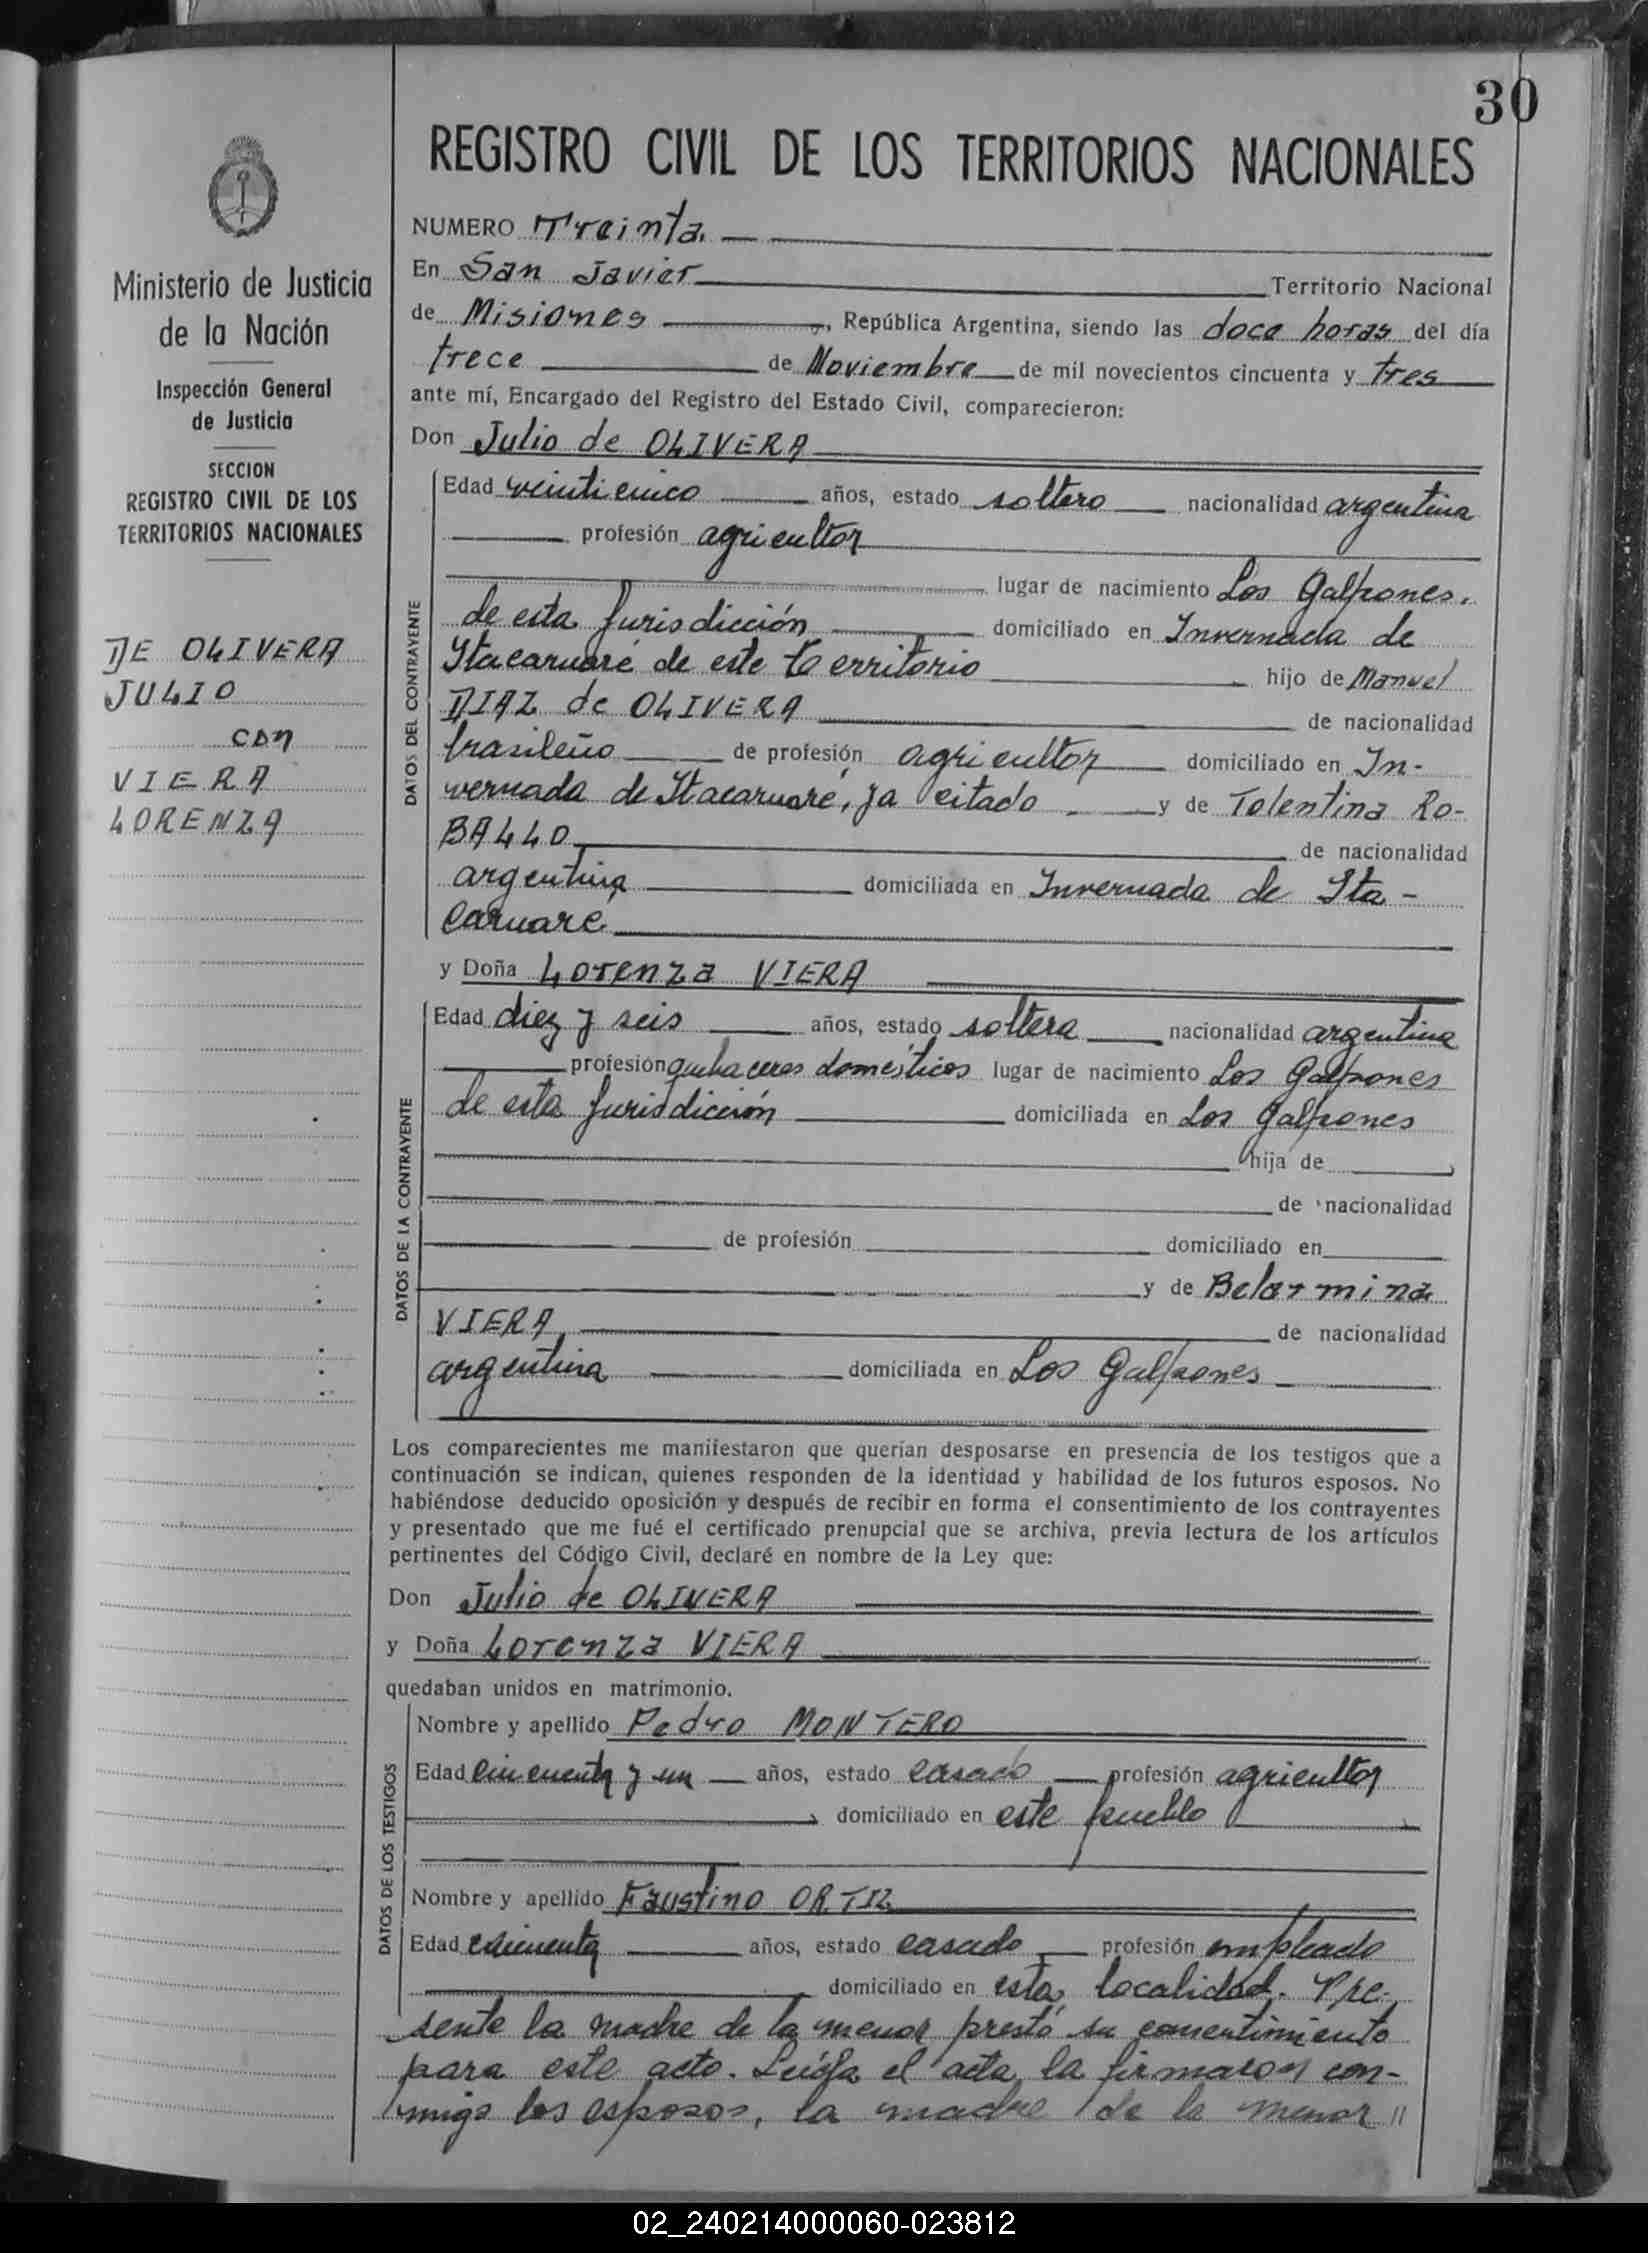 30
REGISTRO CIVIL DE LOS TERRITORIOS NACIONALES
Ministerio de Justicia
de la Nación
Inspección General
de Justicia
SECCION
REGISTRO CIVIL DE LOS
TERRITORIOS NACIONALES
DE OLIVERA
JULIO
con
VIERA
LORENZA
NUMERO Treinta.
En San Javier Territorio Nacional
de Misiones, República Argentina, siendo las doce horas del día
trece de Noviembre de mil novecientos cincuenta y tres
ante mí, Encargado del Registro del Estado Civil, comparecieron:
Don Julio de OLIVERA
DATOS DEL CONTRAYENTE
Edad veinticinco años, estado soltero nacionalidad argentina
profesión agricultor
lugar de nacimiento Los Galpones.
de esta Jurisdicción domiciliado en Invernada de
Itacaruaré de este territorio hijo de Manuel
DIAZ de OLIVERA de nacionalidad
brasileño de profesión agricultor domiciliado en In-
vernada de Itacaruaré, ya citado y de Tolentina Ro-
BALLO de nacionalidad
argentina domiciliada en Invernada de Ita-
caruaré.
y Doña Lorenza VIERA
DATOS DE LA CONTRAYENTE
Edad diez y seis años, estado soltera nacionalidad argentina
profesión quehaceres domésticos lugar de nacimiento Los Galpones
de esta Jurisdicción domiciliada en Los Galpones
hija de
de nacionalidad
de profesión domiciliado en
y de Belarmina
VIERA, de nacionalidad
argentina domiciliada en Los Galpones
Los comparecientes me manifestaron que querían desposarse en presencia de los testigos que a
continuación se indican, quienes responden de la identidad y habilidad de los futuros esposos. No
habiéndose deducido oposición y después de recibir en forma el consentimiento de los contrayentes
y presentado que me fué el certificado prenupcial que se archiva, previa lectura de los artículos
pertinentes del Código Civil, declaré en nombre de la Ley que:
Don Julio de OLIVERA
y Doña Lorenza VIERA
quedaban unidos en matrimonio.
DATOS DE LOS TESTIGOS
Nombre y apellido Pedro MONTERO
Edad cincuenta y un años, estado casado profesión agricultor
domiciliado en este pueblo
Nombre y apellido Faustino ORTIZ
Edad cincuenta años, estado casado profesión empleado
domiciliado en esta localidad. Pre-
sente la madre de la menor prestó su consentimiento
para este acto. Leída el acta, la firmaron con-
migo los esposos, la madre de la menor //
02_240214000060-023812